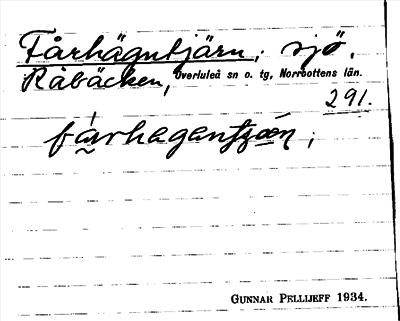 Fårhägntjärn; sjö.
Råbäcken, Överluleå sn o. tg, Norrbottens län.
291.
fárhagantjạ̈ṇ;
GUNNAR PELLIJEFF 1934.